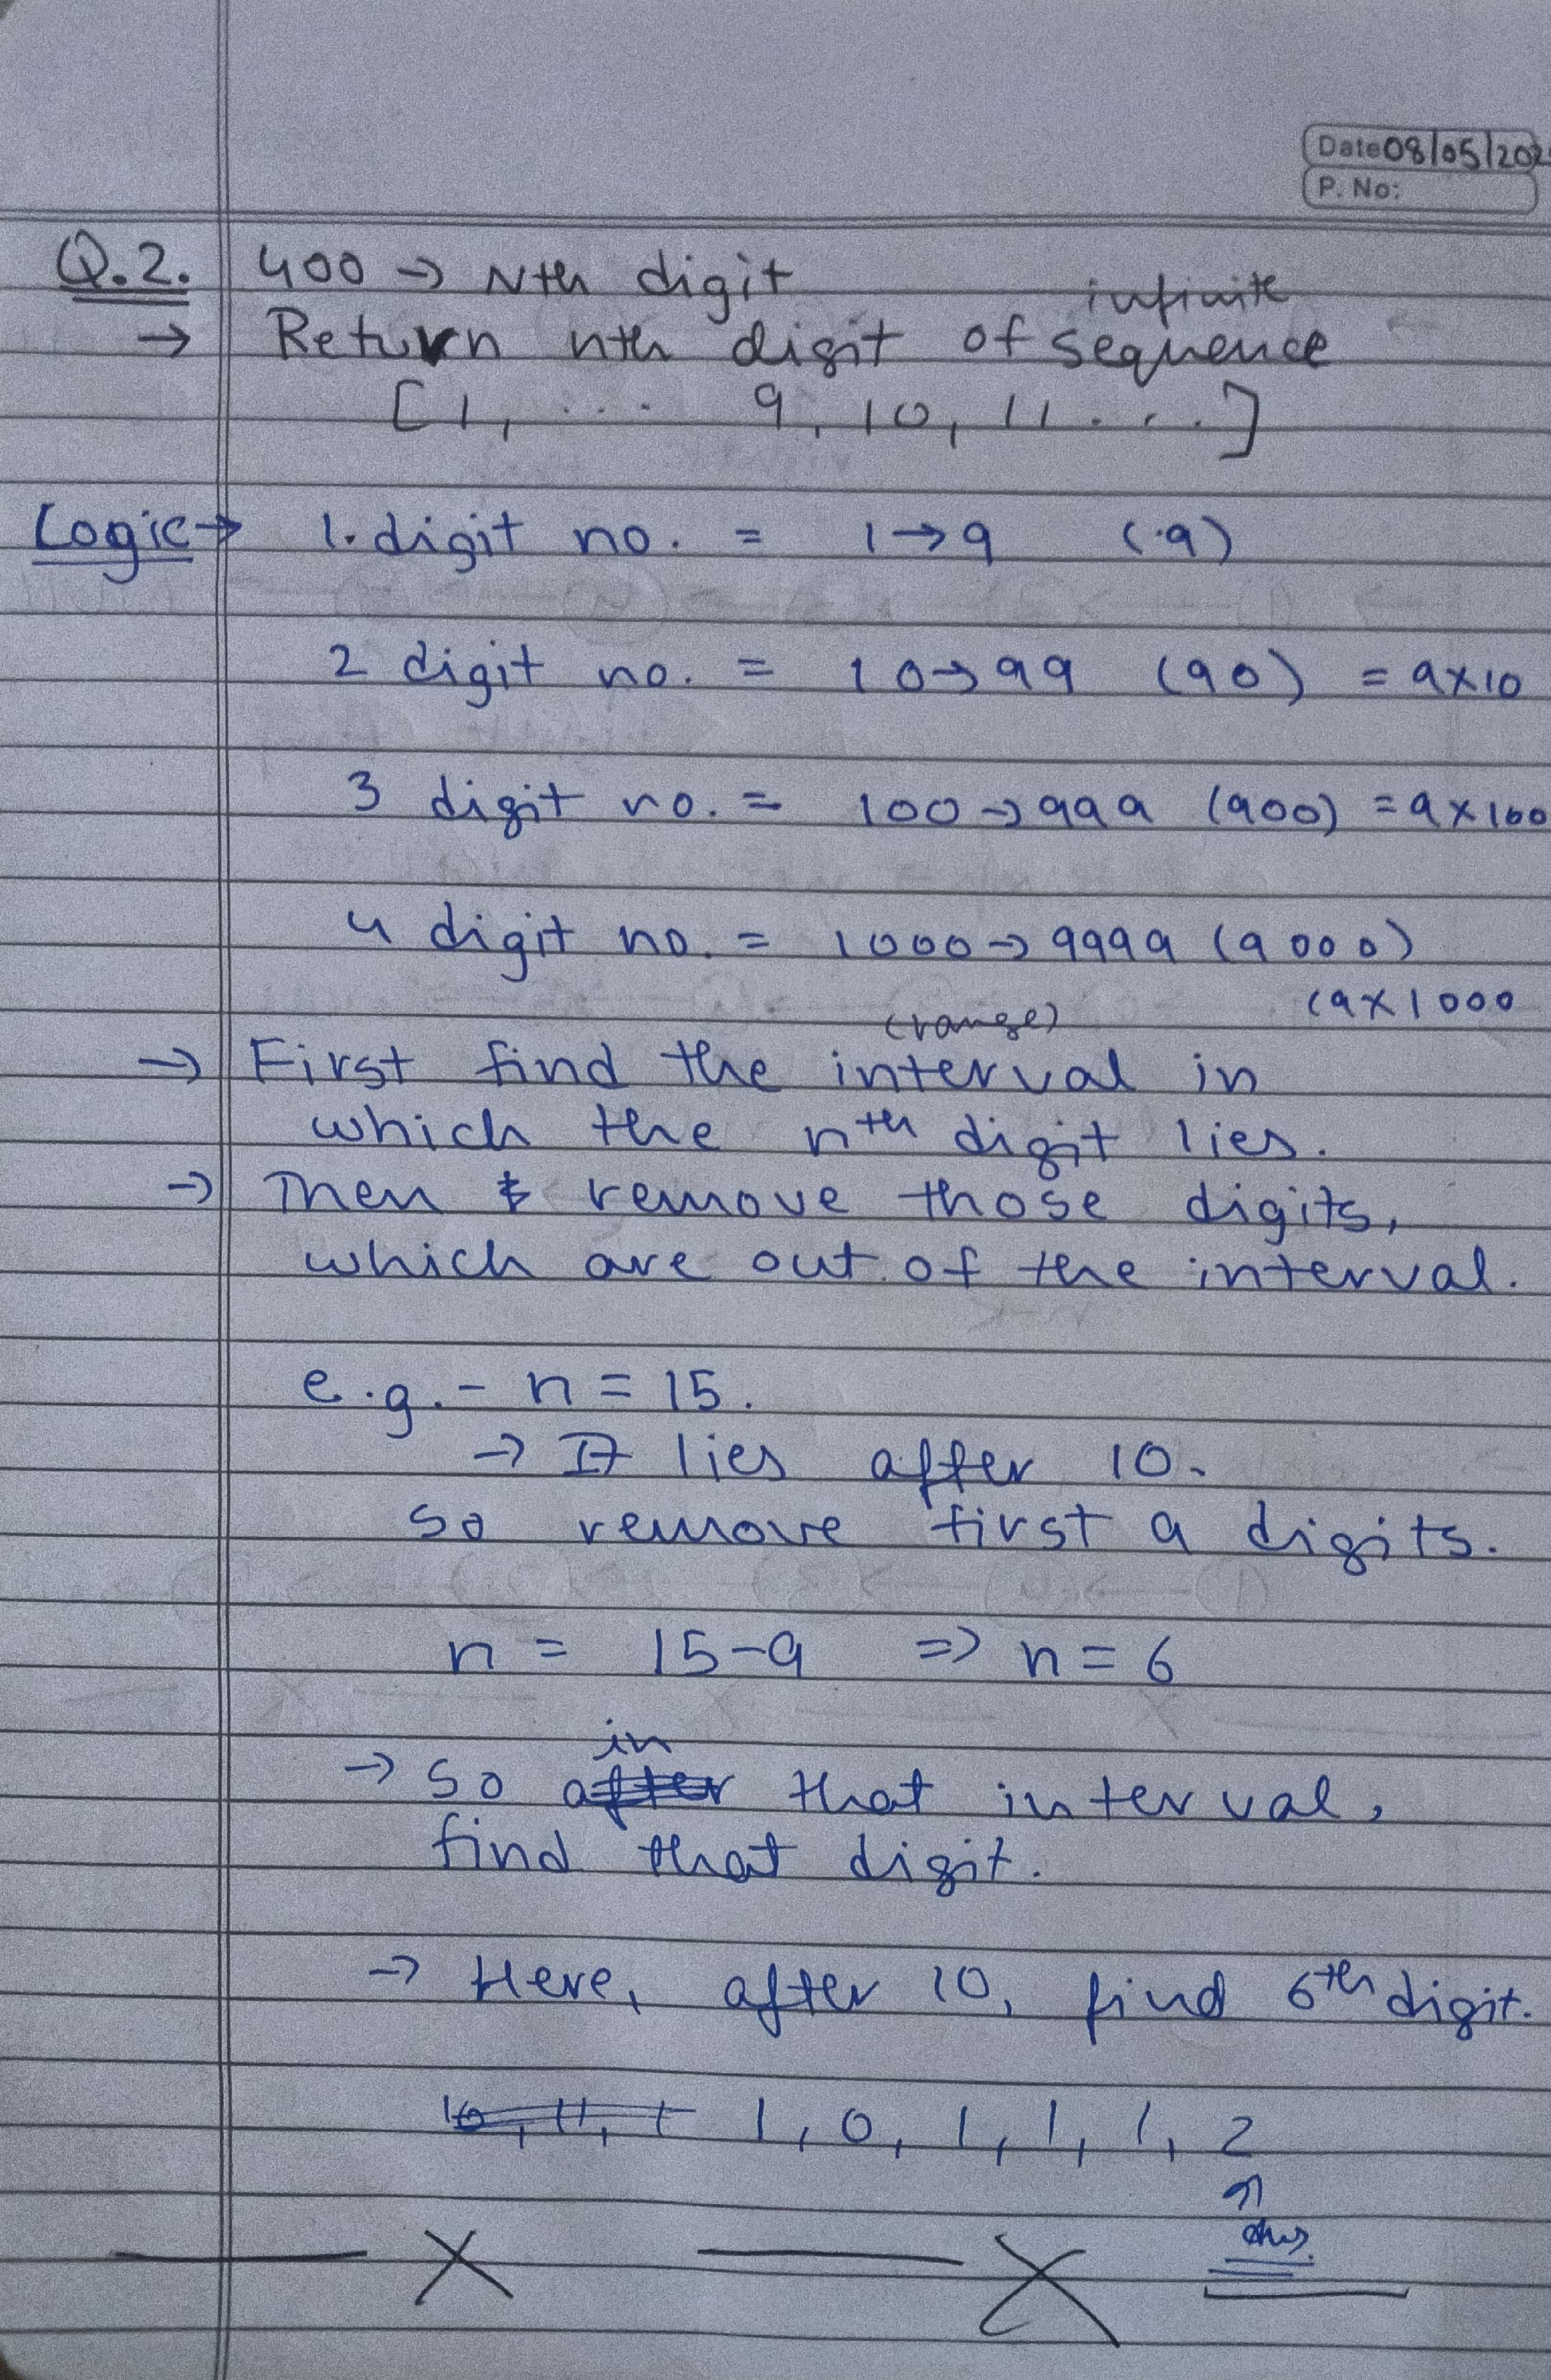 Date 08/05/202
P. No:
Q.2. 400 → Nth digit
→ Return nth digit of infinite sequence
[1, ... 9, 10, 11 ....]
Logic → 1. digit no. = 1→9 (.9)
2 digit no. = 10→99 (90) = 9×10
3 digit no. = 100→999 (900) = 9×100
4 digit no. = 1000→9999 (9000)
(9×1000
→ First find the interval (range) in
which the nth digit lies.
→ Then remove those digits,
which are out of the interval.
e.g. - n = 15.
→ It lies after 10.
so remove first 9 digits.
n = 15-9 => n = 6
→ so in that interval,
find that digit.
→ Here, after 10, find 6th digit.
10, 11, 1 1, 0, 1, 1, 1, 2
ans.